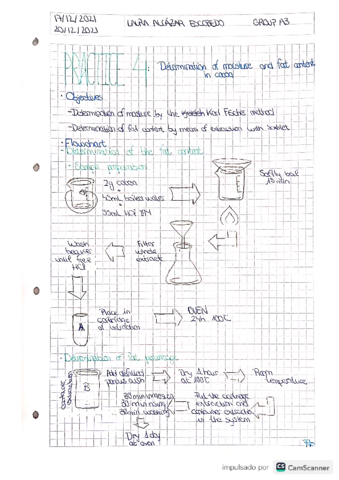 19/12/2021
20/12/2021
LAURA ALCÁZAR ESCOBEDO
GROUP A3
PRACTICE 4: Determination of moisture and fat content
in cocoa
· Objectives
-Determination of moisture by the Karl Fischer method
-Determination of fat content by means of extraction with soxhlet
· Flowchart
Determination of the fat content
· Sample preparation
2g cocoa
+
45mL boiled water
+
55mL HCl 8M
Softly boil
15 min
Wash
beaker
until free
HCl
Filter
whole
extract
A
Place in
cartridge
of extraction
OVEN
24h 100°C
· Determination of fat
B
Add defatted
porous
Dry 1 hour
at 100°C
Room
temperature
30 min immersing
30 min rinsing
Put the cartridge
extraction and
container extraction
in the system
Dry 1 day
at oven
impulsado por CS CamScanner